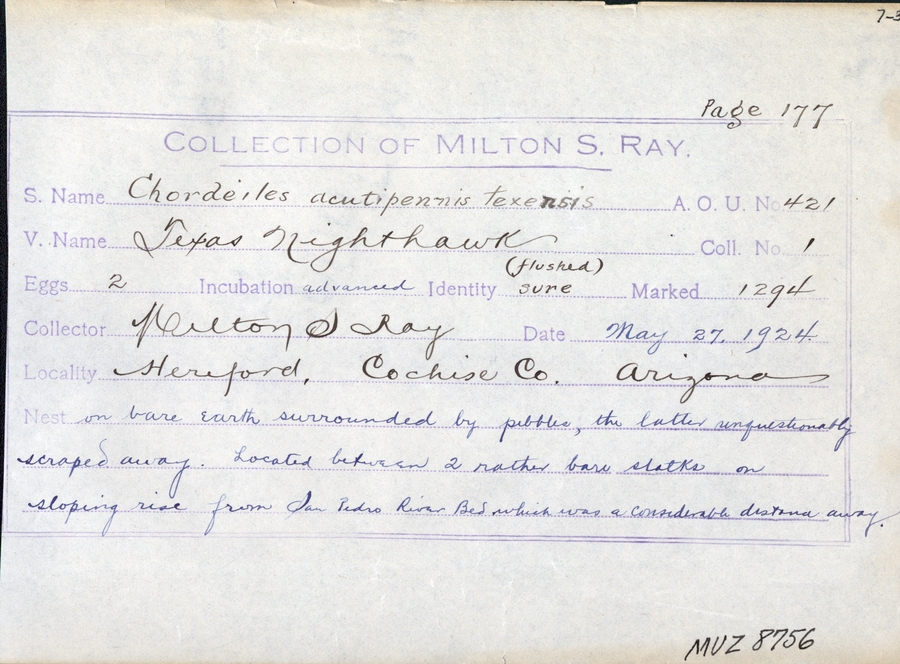 7-3
Page 177
COLLECTION OF MILTON S. RAY.
S. Name Chordeiles acutipennis texensis A. O. U. No. 421
V. Name Texas Nighthawk Coll. No. 1
(flushed)
Eggs 2 Incubation advanced Identity sure Marked 1294
Collector Milton S Ray Date May 27, 1924.
Locality Hereford, Cochise Co. Arizona
Nest on bare earth surrounded by pebbles, the latter unquestionably
scraped away. Located between 2 rather bare stalks on
sloping rise from San Pedro River Bed which was a considerable distance away.
MVZ 8756